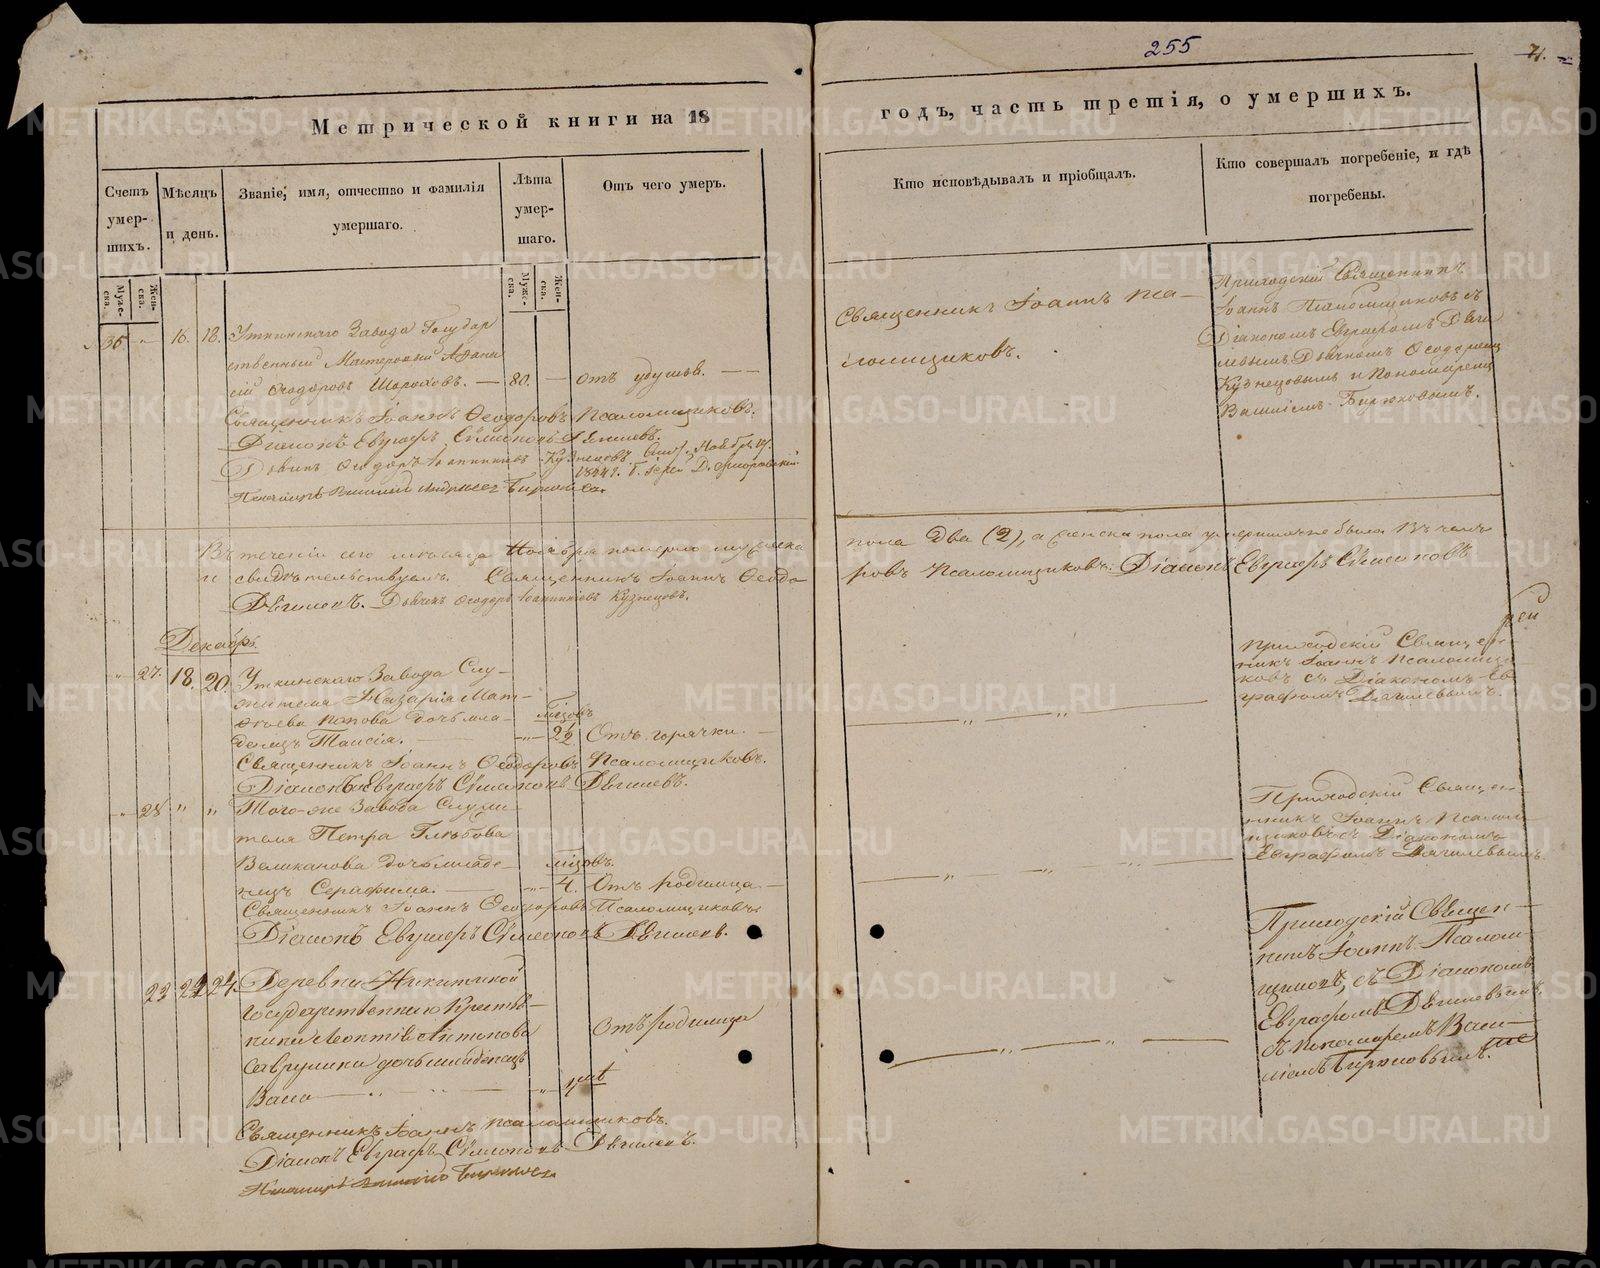 255
71.
Метрической книги на 18
годъ, часть третія, о умершихъ.
Счетъ умер-шихъ.
Муже-ска.
Жен-ска.
Мѣсяцъ и день.
Званіе, имя, отчество и фамилія умершаго.
Лѣта умер-шаго.
Муже-ска.
Жен-ска.
Отъ чего умеръ.
Кто исповѣдывалъ и пріобщалъ.
Кто совершалъ погребеніе, и гдѣ погребены.
36 16. 18. Уткинскаго Завода Государ
ственный Мастеровый Афана
сій Ѳеодоровъ Шороховъ. — 80. — отъ удушья.
Священникъ Іоаннъ Ѳеодоровъ Псаломщиковъ.
Діаконъ Евграфъ Симеоновъ Дягилевъ.
Дьячекъ Ѳеодоръ Іоанникіевъ Кузнецовъ.
Священникъ Іоаннъ Пса-
ломщиковъ.
Приходскій Священникъ
Іоаннъ Псаломщиковъ съ
Діакономъ Евграфомъ Дяги
левымъ Дьячкомъ Ѳеодоромъ
Кузнецовымъ и Пономаремъ
Василіемъ Бирюковымъ.
Въ теченіи сего мѣсяца Ноября померло мужеска
пола два (2), а женска пола умершихъ не было. Въ чемъ
и свидѣтельствуемъ. Священникъ Іоаннъ Ѳеодо
ровъ Псаломщиковъ. Діаконъ Евграфъ Симеоновъ
Дягилевъ. Дьячекъ Ѳеодоръ Іоанникіевъ Кузнецовъ.
Декабрь
27. 18. 20. Уткинскаго Завода Слу-
жителя Назарія Мат-
ѳеева Попова дочь мла-
денецъ Таисія. — мѣсцовъ 2½ Отъ горячки.
Священникъ Іоаннъ Ѳеодоровъ Псаломщиковъ.
Діаконъ Евграфъ Симеоновъ Дягилевъ.
Приходскій Священ-
никъ Іоаннъ Псаломщи
ковъ съ Діакономъ Ев
графомъ Дягилевымъ.
28 " " Того-же Завода Служи
теля Петра Глѣбова
Великанова дочь младе-
нецъ Серафима. — мѣсцовъ. 4. Отъ родимца
Священникъ Іоаннъ Ѳеодоровъ Псаломщиковъ
Діаконъ Евграфъ Симеоновъ Дягилевъ.
Приходскій Священ-
никъ Іоаннъ Псалом
щиковъ съ Діакономъ
Евграфомъ Дягилевымъ.
24. Деревни Никитиной
Государственнаго Крестья-
нина Леонтія Антонова
Саврулина дочь младенецъ
Васса
Отъ родимца
Священникъ Іоаннъ Псаломщиковъ.
Діаконъ Евграфъ Симеоновъ Дягилевъ.
Приходскій Священ-
никъ Іоаннъ Псалом-
щиковъ, съ Діакономъ
Евграфомъ Дягилевымъ
и Пономаремъ Васи-
ліемъ Бирюковымъ.
METRIKI.GASO-URAL.RU